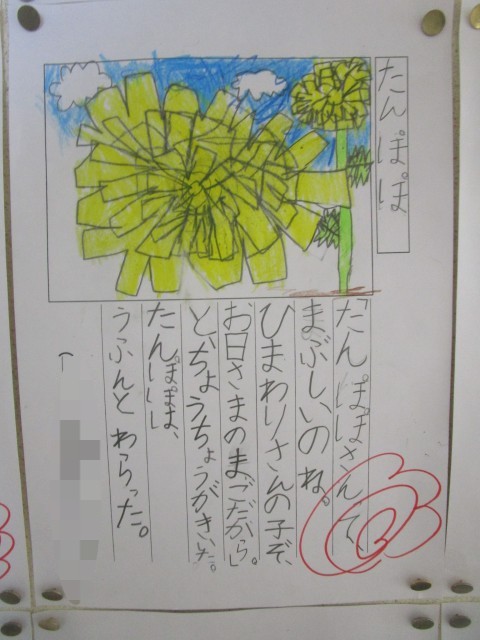 たんぽぽ
「たんぽぽさんて、
まぶしいのね。
ひまわりさんの子ぞ、
お日さまのまごだから。」
と、ちょうちょうがきいた。
たんぽぽは、
うふんとわらった。